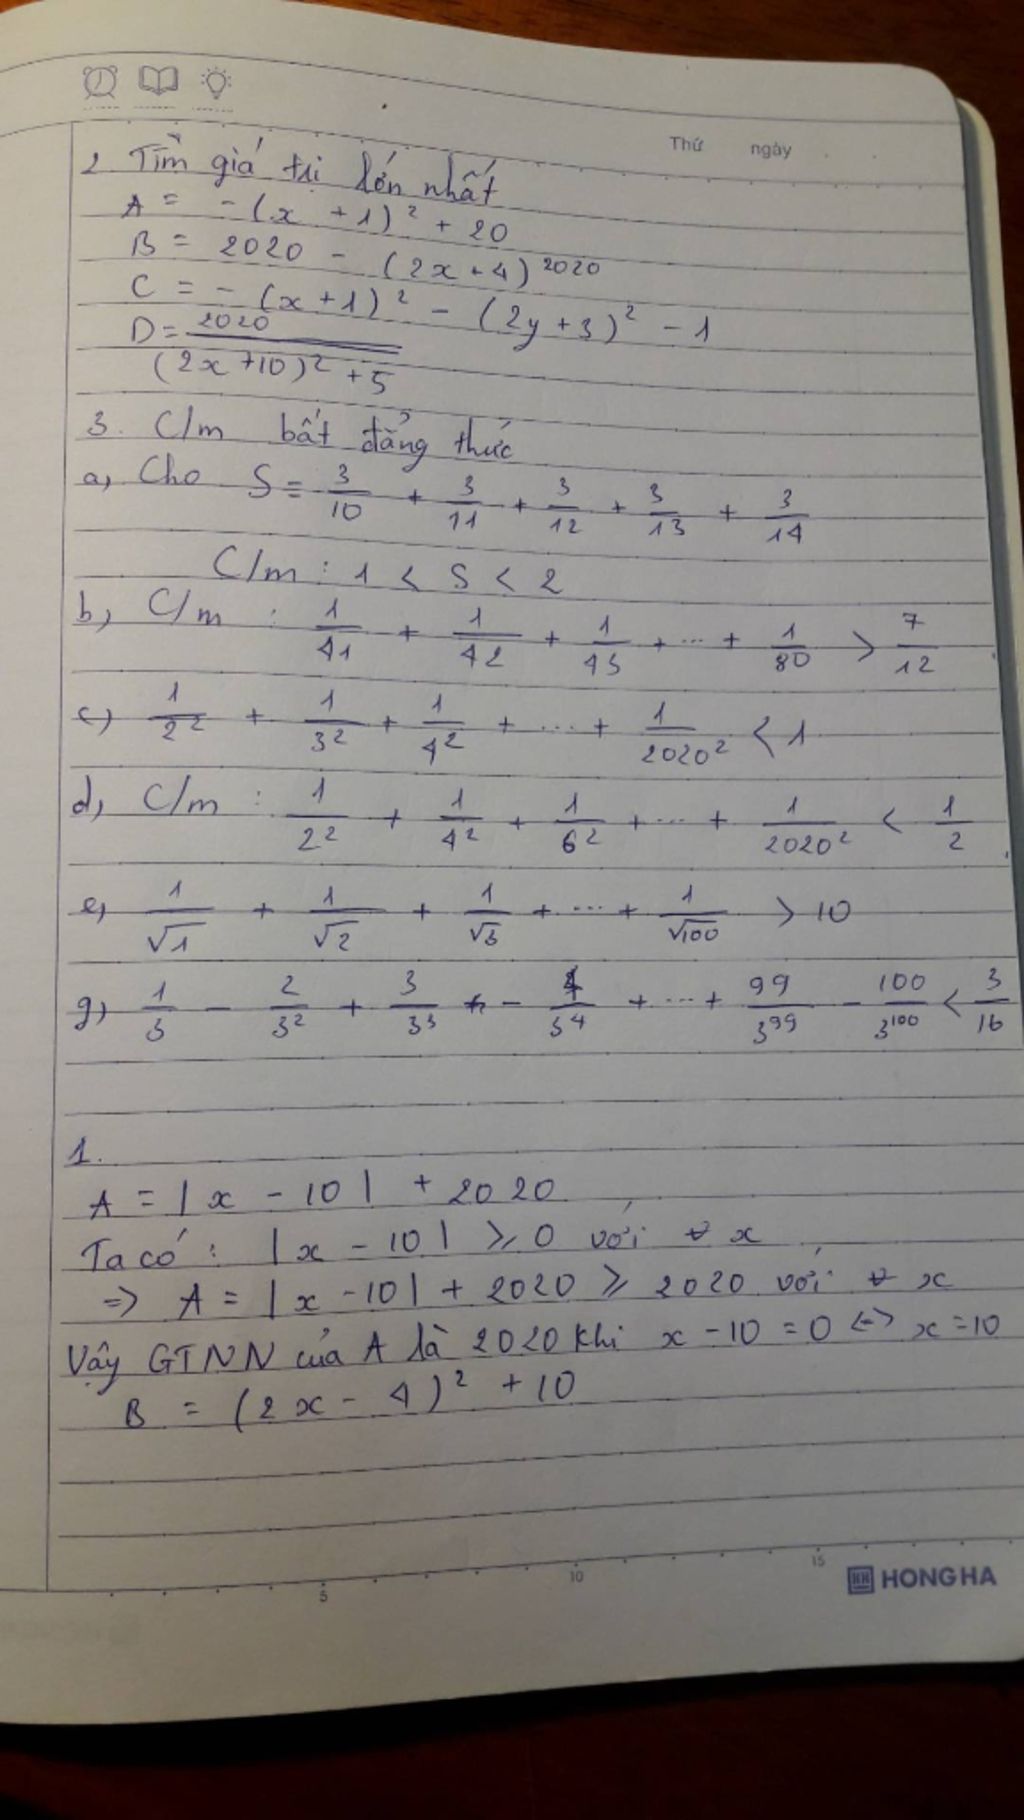 Thứ ngày
2, Tìm giá trị lớn nhất
A = -(x + 1)² + 20
B = 2020 - (2x + 4)²⁰²⁰
C = - (x + 1)² - (2y + 3)² - 1
D = 2020 / ((2x + 10)² + 5)
3. C/m bất đẳng thức
a, Cho S = 3/10 + 3/11 + 3/12 + 3/13 + 3/14
C/m : 1 < S < 2
b, C/m : 1/41 + 1/42 + 1/43 + ... + 1/80 > 7/12
c) 1/2² + 1/3² + 1/4² + ... + 1/2020² < 1
d, C/m : 1/2² + 1/4² + 1/6² + ... + 1/2020² < 1/2
e, 1/√1 + 1/√2 + 1/√3 + ... + 1/√100 > 10
g) 1/3 - 2/3² + 3/3³ - 4/3⁴ + ... + 99/3⁹⁹ - 100/3¹⁰⁰ < 3/16
1.
A = |x - 10| + 2020
Ta có : |x - 10| ≥ 0 với ∀ x
=> A = |x - 10| + 2020 ≥ 2020 với ∀ x
Vậy GTNN của A là 2020 khi x - 10 = 0 <=> x = 10
B = (2x - 4)² + 10
5 10 15
HONG HA